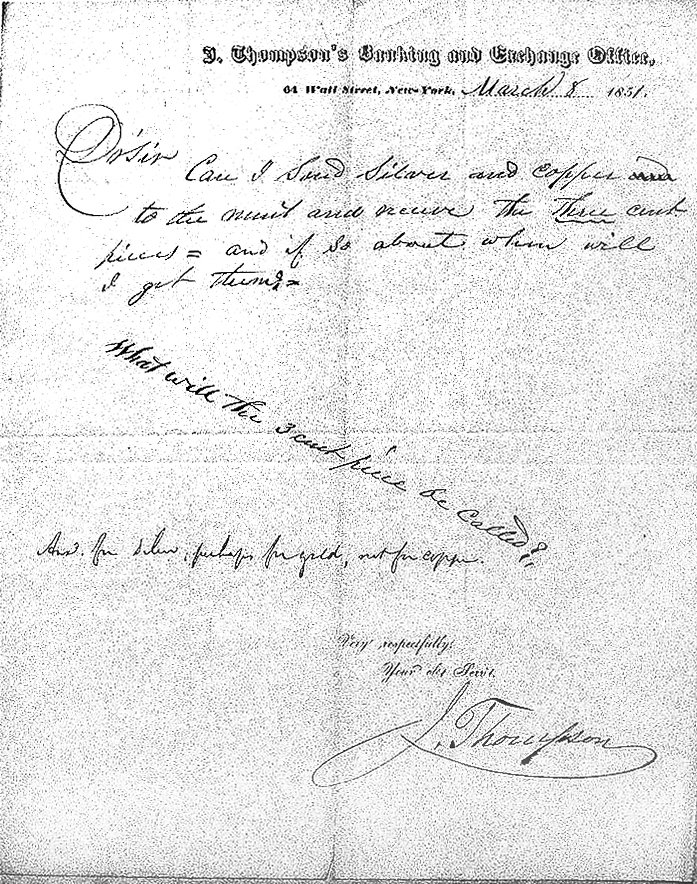 J. Thompson's Banking and Exchange Office,
64 Wall Street, New-York, March 8 1851.
Dr Sir
Can I send silver and copper and
to the mint and receive the three cent
pieces = and if so about when will
I get them? =
What will the 3 cent piece be called?
Ans. for silver, perhaps for gold, not for copper.
Very respectfully,
Your obt Servt.
J. Thompson